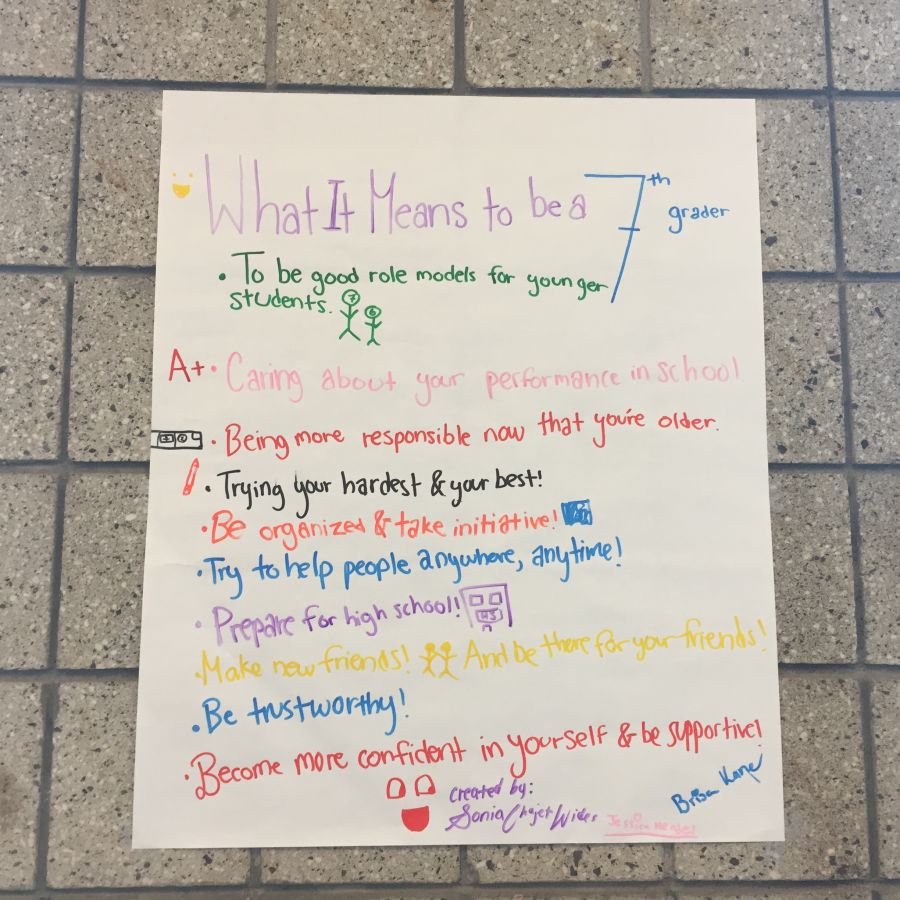 What It Means to be a 7th grader
• To be good role models for younger
students.
7 6
A+ • Caring about your performance in school
• Being more responsible now that you're older.
• Trying your hardest & your best!
• Be organized & take initiative!
• Try to help people anywhere, anytime!
• Prepare for high school!
HS
• Make new friends! And be there for your friends!
• Be trustworthy!
• Become more confident in yourself & be supportive!
created by:
Sonia Chajet Wides
Jessica
Kane